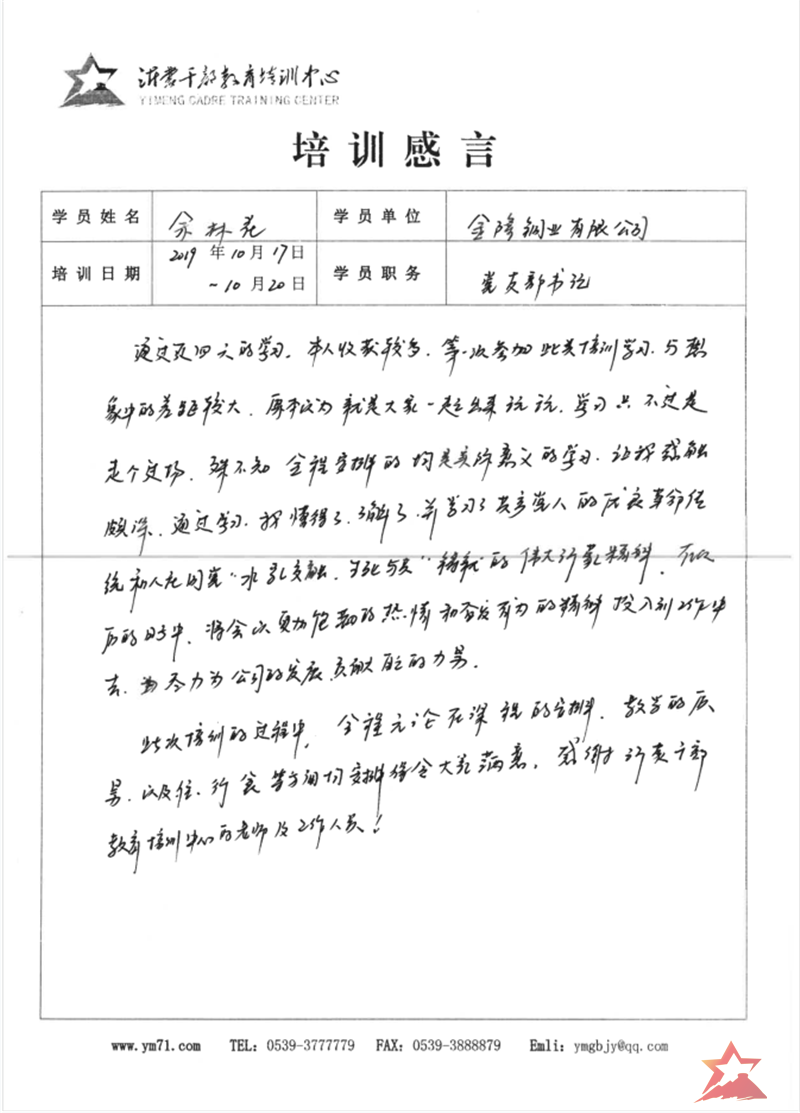 沂蒙干部教育培训中心
YIMENG CADRE TRAINING CENTER
培训感言
学员姓名 余林 学员单位 金隆铜业有限公司
培训日期 2019年10月17日 ~10月20日 学员职务 党支部书记
通过这四天的学习，本人收获较多，第一次参加此类培训学习，与想
象中的差距较大，原本以为就是大家一起出来玩玩，学习只不过是
走个过场，殊不知全程安排的均是实际意义的学习，让我感触
颇深，通过学习，我懂得了、了解了、并学习了共产党人的优良革命传
统和人民同党"水乳交融、生死与共"铸就的伟大沂蒙精神，在以
后的日子中，将会以更加饱满的热情和奋发有为的精神投入到工作中
去，为尽力为公司的发展贡献自己的力量。
此次培训的过程中，全程无论在课程的安排，教学的质
量，以及住、行、食等方面均安排得令大家满意，感谢沂蒙干部
教育培训中心的老师及工作人员！
www.ym71.com TEL: 0539-3777779 FAX: 0539-3888879 Emli: ymgbjy@qq.com